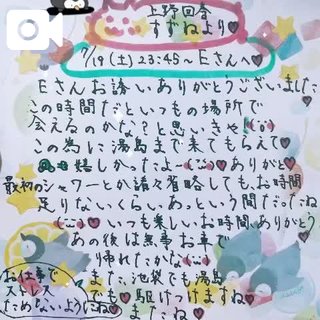 上野回春
すずねより♥
7/19(土)23:45〜Eさんへ♥
Eさんお誘いありがとうございました
この時間だといつもの場所で
会えるのかな?と思いきや!
この為に湯島まで来てもらえて♥
嬉しかったよ〜ありがと♥
最初のシャワーとか諸々省略しても、お時間
足りないくらい、あっという間だったね
いつも楽しいお時間、ありがとう
あの後は無事お車で
帰れたかな
また、池袋でも湯島
でも♥駆けつけますね♥
またね♥
お仕事で
ストレス
ためないようにね